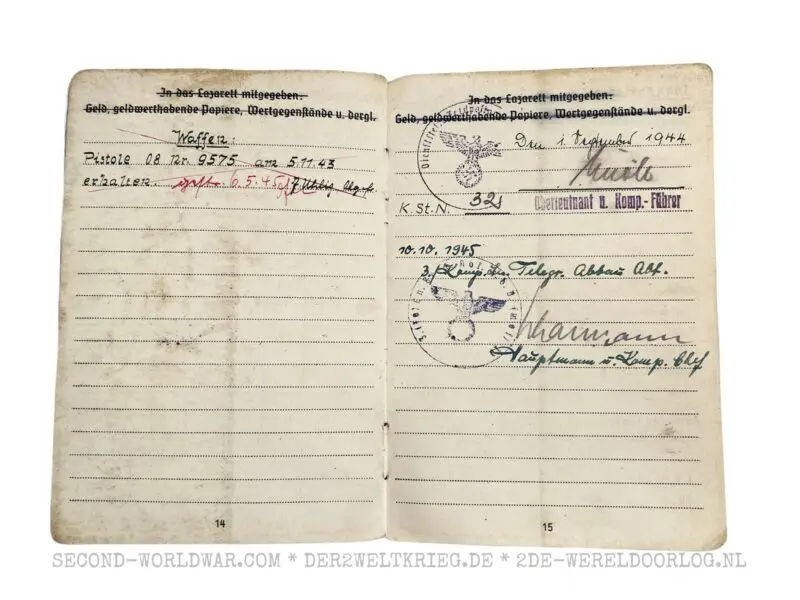 In das Lazarett mitgegeben:
Geld, geldwerthabende Papiere, Wertgegenstände u. dergl.
Waffen:
Pistole 08 Nr. 9575 am 5.11.43
erhalten. 6.5.45
14
In das Lazarett mitgegeben:
Geld, geldwerthabende Papiere, Wertgegenstände u. dergl.
Den 1. September 1944
Oberleutnant u. Komp.-Führer
K. St. N. 32
10.10. 1945
3. Komp. Telegr. Abbau Abt.
Hauptmann u. Komp. Chef
15
SECOND-WORLDWAR.COM * DER2WELTKRIEG.DE * 2DE-WERELDOORLOG.NL